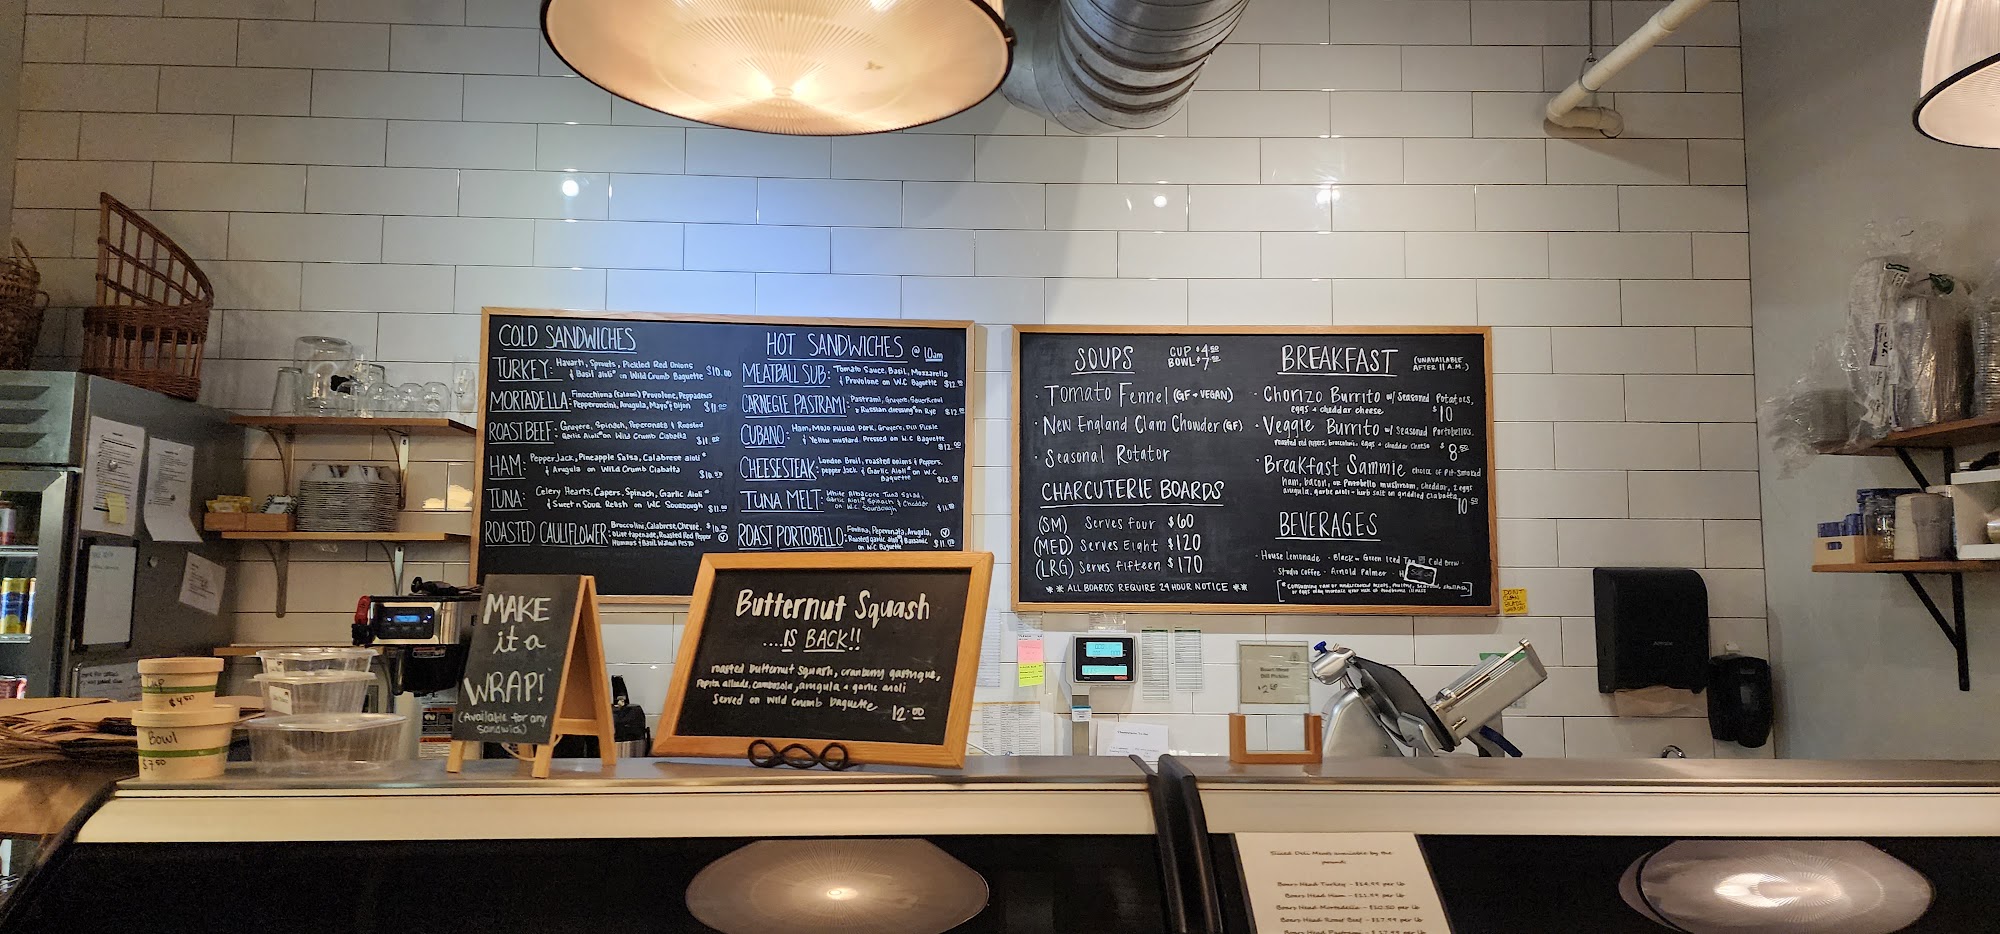 COLD SANDWICHES
TURKEY: Havarti, Sprouts, Pickled Red Onions
& Basil aioli* on Wild Crumb Baguette $10.00
MORTADELLA: Finocchiona (Salami) Provolone, Peppadews
Pepperoncini, Arugula, Mayo & Dijon $11.00
ROAST BEEF: Gruyere, Spinach, Peperonata & Roasted
Garlic Aioli* on Wild Crumb Ciabatta $11.00
HAM: Pepper Jack, Pineapple Salsa, Calabrese aioli*
& Arugula on Wild Crumb Ciabatta $10.50
TUNA: Celery Hearts, Capers, Spinach, Garlic Aioli*
& Sweet n Sour Relish on W.C Sourdough $11.00
ROASTED CAULIFLOWER: Broccolini, Calabrese, Chevre,
Olive tapenade, Roasted Red Pepper
Hummus & Basil Walnut Pesto
HOT SANDWICHES @ 10am
MEATBALL SUB: Tomato Sauce, Basil, Mozzarella
& Provolone on W.C Baguette $12.00
CARNEGIE PASTRAMI: Pastrami, Gruyere, Sauerkraut
& Russian dressing on Rye $12.00
CUBANO: Ham, Mojo Pulled Pork, Gruyere, Dill Pickle
& Yellow mustard. Pressed on W.C Baguette
$12.00
CHEESESTEAK: London Broil, roasted onions & Peppers,
pepper Jack & Garlic Aioli* on W.C
Baguette $12.00
TUNA MELT: White Albacore Tuna Salad,
Garlic Aioli* Spinach & Cheddar
on W.C. Sourdough
ROAST PORTOBELLO: Fontina, Peperonata, Arugula,
Roasted garlic aioli* & Balsamic
on W.C Baguette
SOUPS CUP $4.50
BOWL $7.50
· Tomato Fennel (GF + VEGAN)
· New England Clam Chowder (GF)
· Seasonal Rotator
CHARCUTERIE BOARDS
(SM) Serves Four $60
(MED) Serves Eight $120
(LRG) Serves Fifteen $170
** ALL BOARDS REQUIRE 24 HOUR NOTICE **
BREAKFAST (UNAVAILABLE
AFTER 11 A.M.)
· Chorizo Burrito w/ Seasoned Potatoes,
eggs + cheddar cheese $10
· Veggie Burrito w/ Seasoned Portobellos,
roasted red peppers, broccolini, eggs + cheddar cheese $8.50
· Breakfast Sammie choice of Pit-Smoked
ham, bacon, or Portobello mushroom, cheddar, 2 eggs
arugula, garlic aioli + herb salt on griddled ciabatta
10.50
BEVERAGES
· House Lemonade · Black or Green Iced Tea Cold Brew ·
Studio Coffee · Arnold Palmer ·
MAKE
it a
WRAP!
(Available for any
Sandwich)
Butternut Squash
....IS BACK!!
roasted butternut squash, cranberry gastrique,
Pepita alioli, cambozola, arugula + garlic aioli
Served on Wild Crumb Baguette
12.00
Cup
$4.50
Bowl
$7.50
DON'T
CLEAN
BLADE
Sliced Deli Meats available by the
pound:
Boars Head Turkey - $14.99 per lb
Boars Head Ham - $11.99 per lb
Boars Head Mortadella - $10.50 per lb
Boars Head Roast Beef - $17.99 per lb